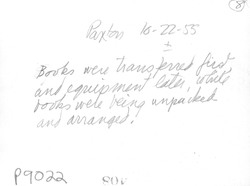 8
Paxton 10-22-55
±
Books were transferred first
and equipment later, while
books were being unpacked
and arranged.
P9022